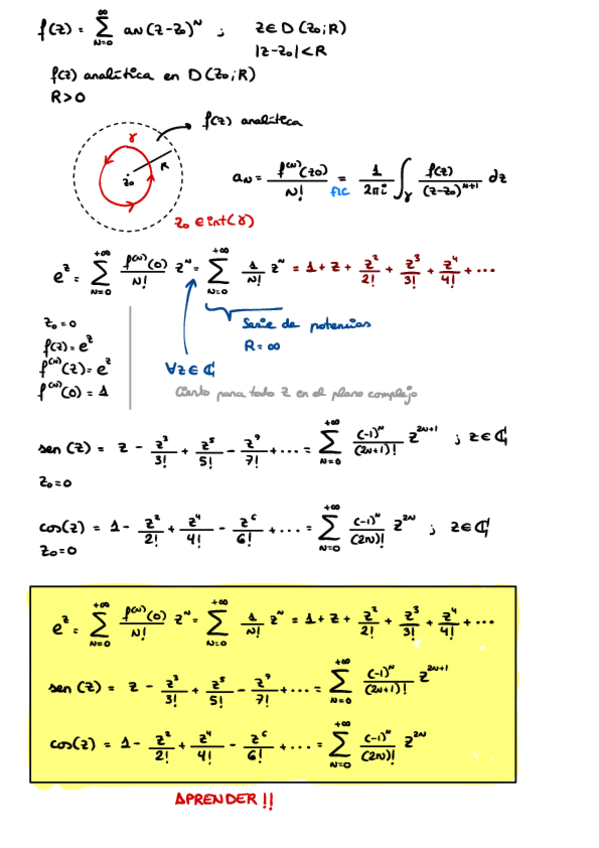 f(z) = ∑_{N=0}^{∞} a_N (z-z₀)^N ; z ∈ D(z₀;R)
|z-z₀| < R
f(z) analítica en D(z₀;R)
R>0
f(z) analítica
γ
R
z₀
a_N = f^{(N)}(z₀)/N! = 1/(2πi) ∫_γ f(z)/(z-z₀)^{N+1} dz
FIC
z₀ ∈ int(γ)
e^z = ∑_{N=0}^{+∞} f^{(N)}(0)/N! z^N = ∑_{N=0}^{+∞} 1/N! z^N = 1 + z + z²/2! + z³/3! + z⁴/4! + ...
z₀ = 0
Serie de potencias
f(z) = e^z
R = ∞
f^{(N)}(z) = e^z
∀z ∈ ℂ
f^{(N)}(0) = 1
Cierto para todo z en el plano complejo
sen(z) = z - z³/3! + z⁵/5! - z⁷/7! + ... = ∑_{N=0}^{+∞} (-1)^N/(2N+1)! z^{2N+1} ; z ∈ ℂ
z₀ = 0
cos(z) = 1 - z²/2! + z⁴/4! - z⁶/6! + ... = ∑_{N=0}^{+∞} (-1)^N/(2N)! z^{2N} ; z ∈ ℂ
z₀ = 0
e^z = ∑_{N=0}^{+∞} f^{(N)}(0)/N! z^N = ∑_{N=0}^{+∞} 1/N! z^N = 1 + z + z²/2! + z³/3! + z⁴/4! + ...
sen(z) = z - z³/3! + z⁵/5! - z⁷/7! + ... = ∑_{N=0}^{+∞} (-1)^N/(2N+1)! z^{2N+1}
cos(z) = 1 - z²/2! + z⁴/4! - z⁶/6! + ... = ∑_{N=0}^{+∞} (-1)^N/(2N)! z^{2N}
APRENDER !!